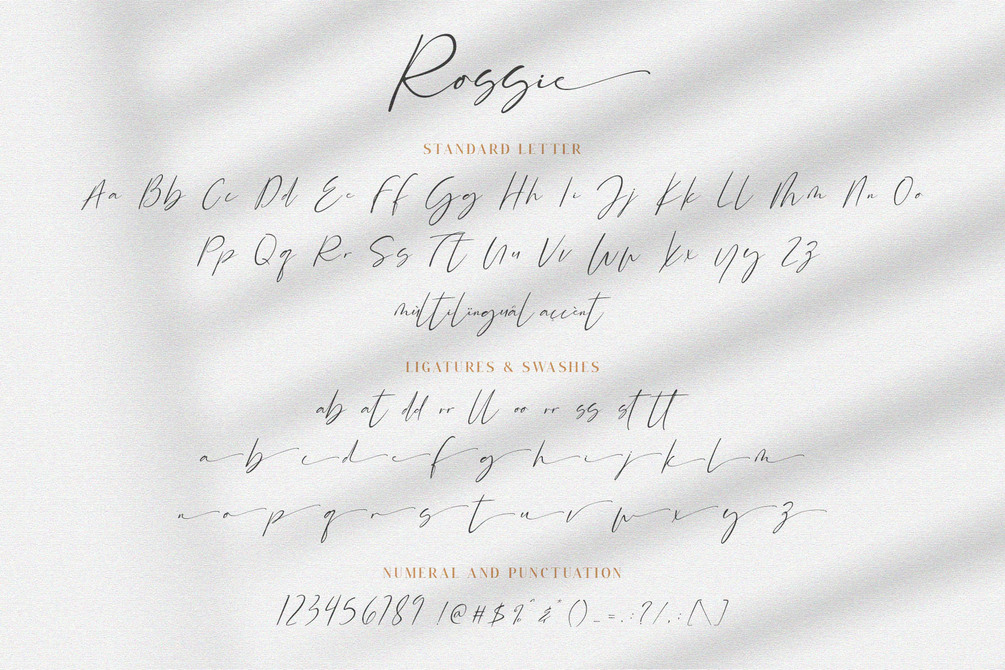 Rossie
STANDARD LETTER
Aa Bb Cc Dd Ee Ff Gg Hh Ii Jj Kk Ll Mm Nn Oo
Pp Qq Rr Ss Tt Uu Vv Ww Xx Yy Zz
mùltilïnguâl açcènt
LIGATURES & SWASHES
ab at dd rr ll oo rr ss st tt
a b c d e f g h i j k l m
n o p q r s t u v w x y z
NUMERAL AND PUNCTUATION
123456789 !@#$%^&*()_=.:?/,:[\]